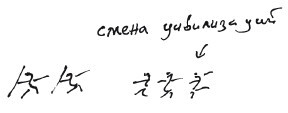 смена цивилизаций